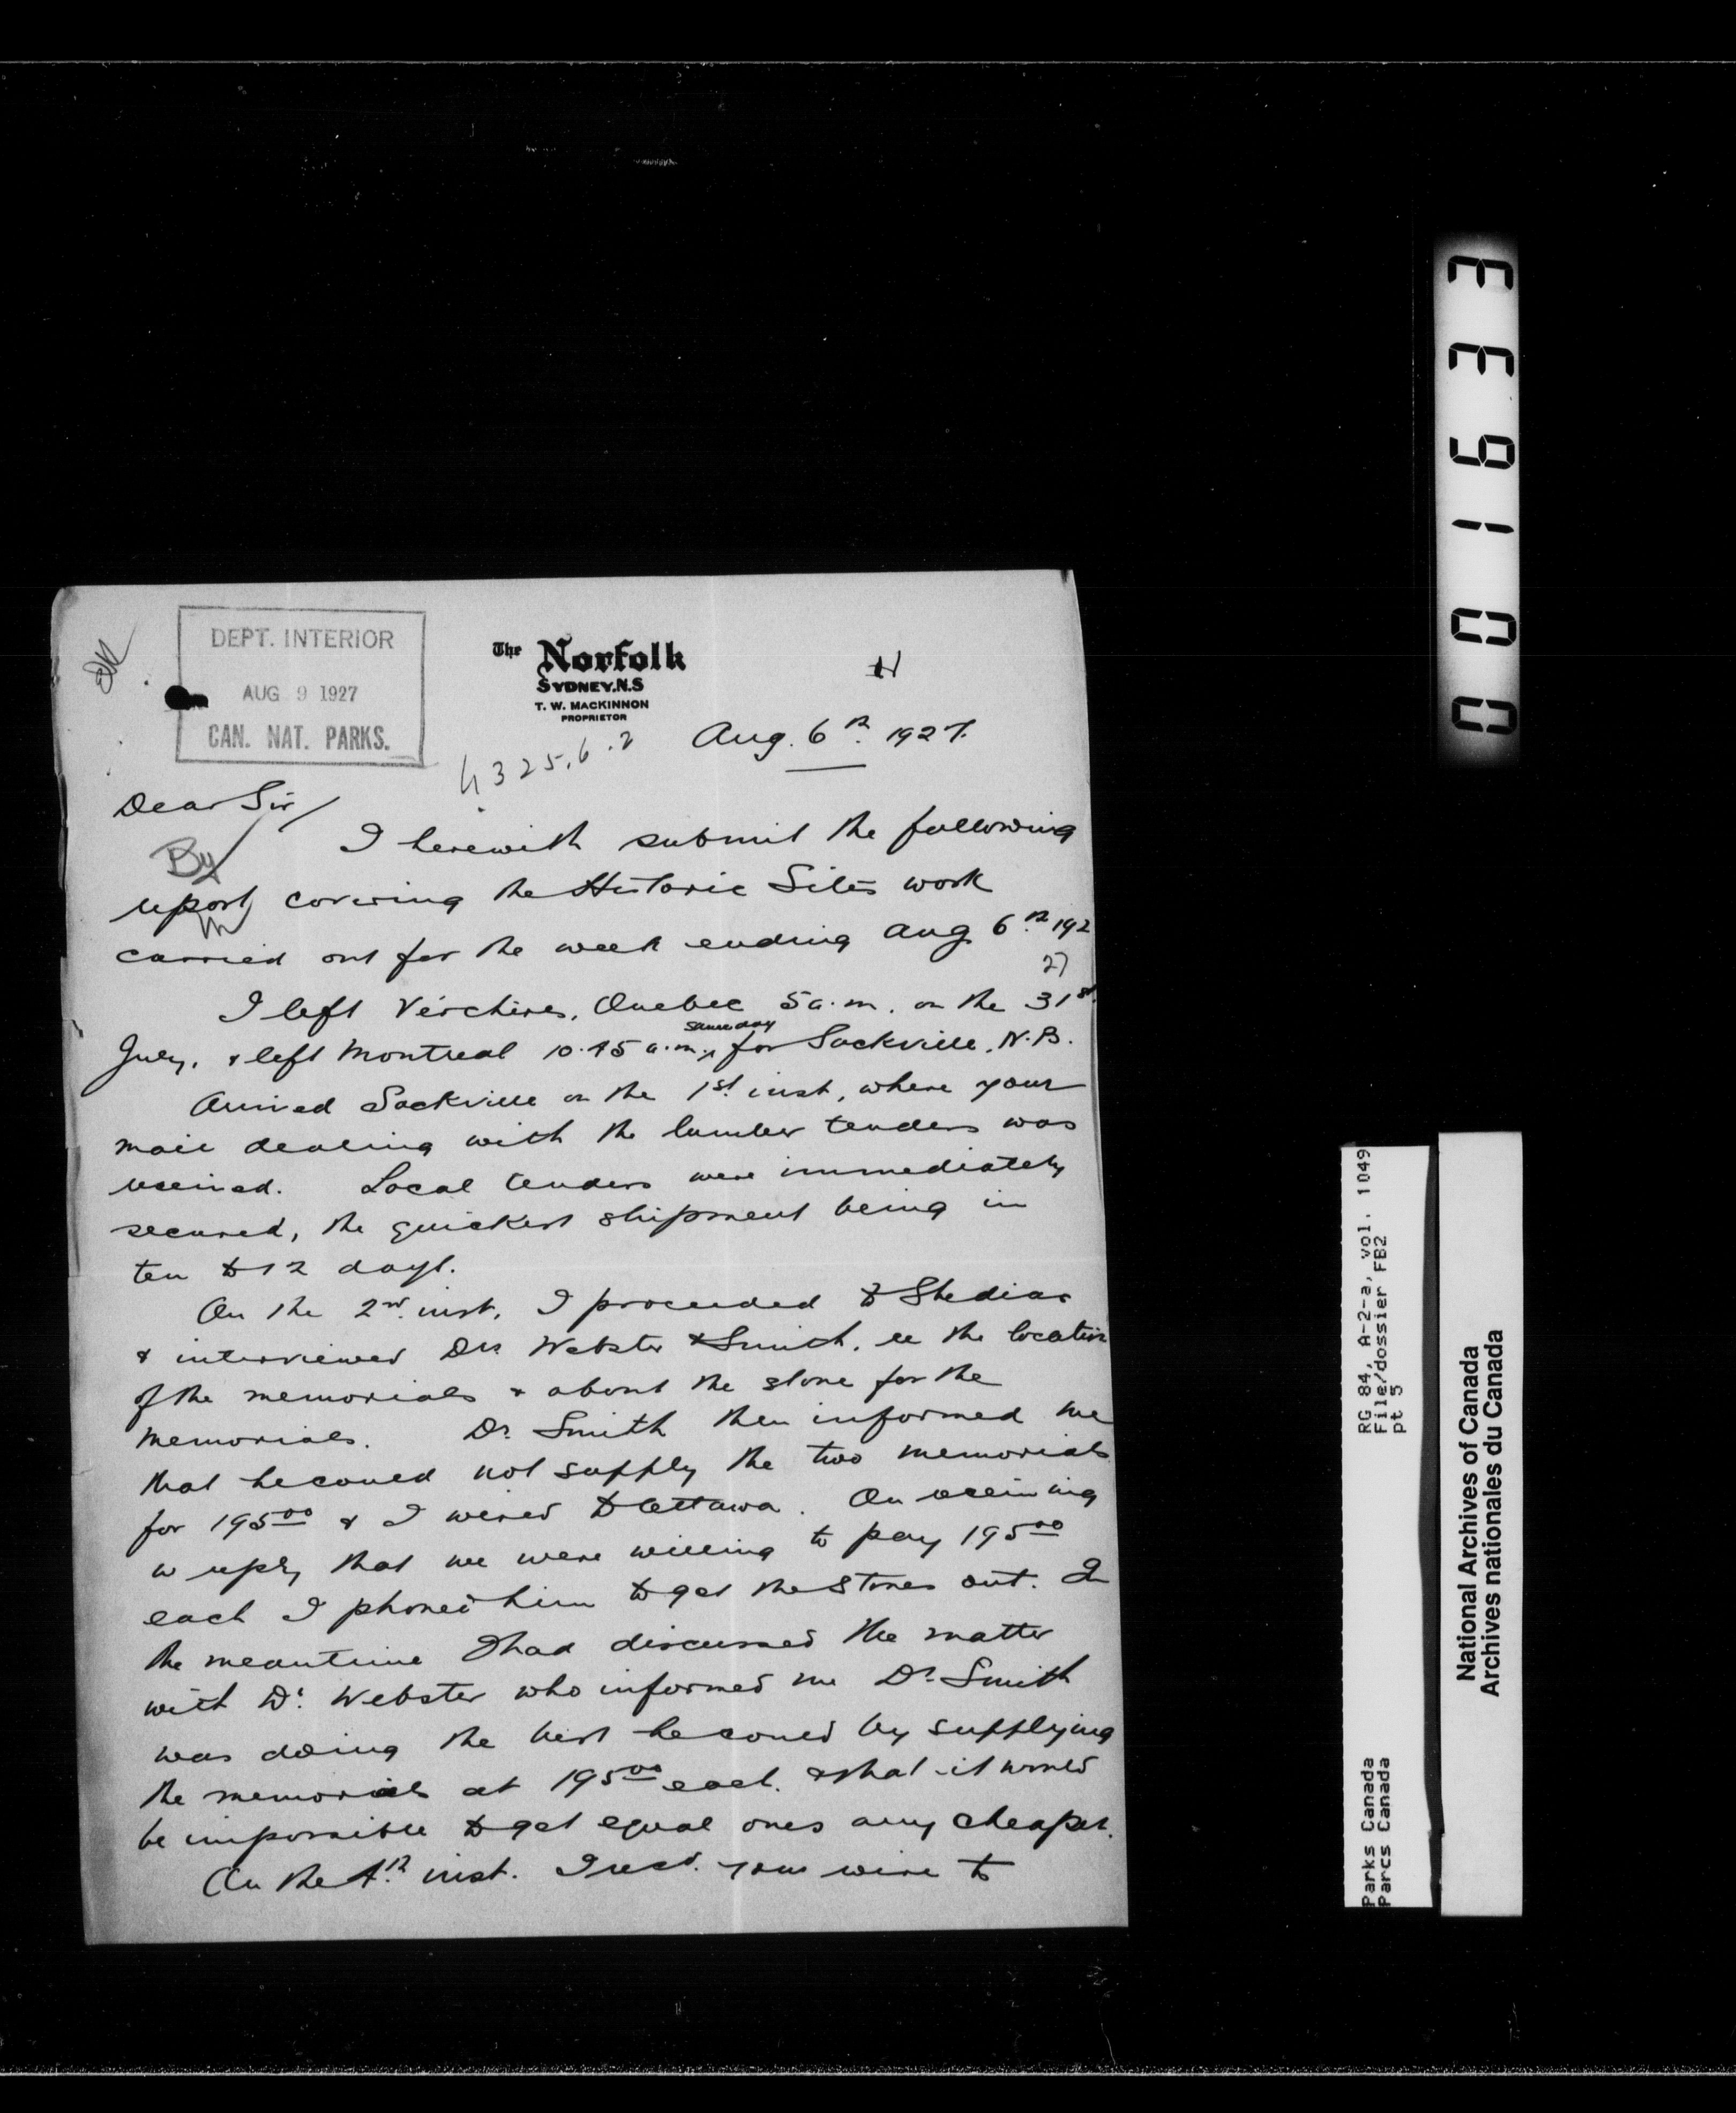 DEPT. INTERIOR
AUG 9 1927
CAN. NAT. PARKS.
The Norfolk
SYDNEY.N.S
T. W. MACKINNON
PROPRIETOR
H
4325.6.2
Aug. 6th 1927.
Dear Sir/
By
I herewith submit the following
report covering the Historic Sites work
carried out for the week ending Aug 6th 192
27
I left Verchères, Quebec 5 a.m. on the 31st
same day
July, & left Montreal 10.45 a.m. for Sackville, N.B.
Arrived Sackville on the 1st inst, where your
mail dealing with the lumber tenders was
received. Local tenders were immediately
secured, the quickest shipment being in
ten to 12 days.
On the 2nd inst, I proceeded to Shediac
& interviewed Drs Webster & Smith, re the location
of the memorials & about the stone for the
memorials. Dr. Smith then informed me
that he could not supply the two memorials
for 195.00 & I wired to Ottawa. On receiving
a reply that we were willing to pay 195.00
each I phoned him to get the stones out. In
the meantime I had discussed the matter
with Dr. Webster who informed me Dr. Smith
was doing the best he could by supplying
the memorials at 195.00 each. & that it would
be impossible to get equal ones any cheaper.
On the 4th inst. I recd. your wire to
001633
RG 84, A-2-a, vol. 1049
File/dossier FB2
pt 5
Parks Canada
Parcs Canada
National Archives of Canada
Archives nationales du Canada